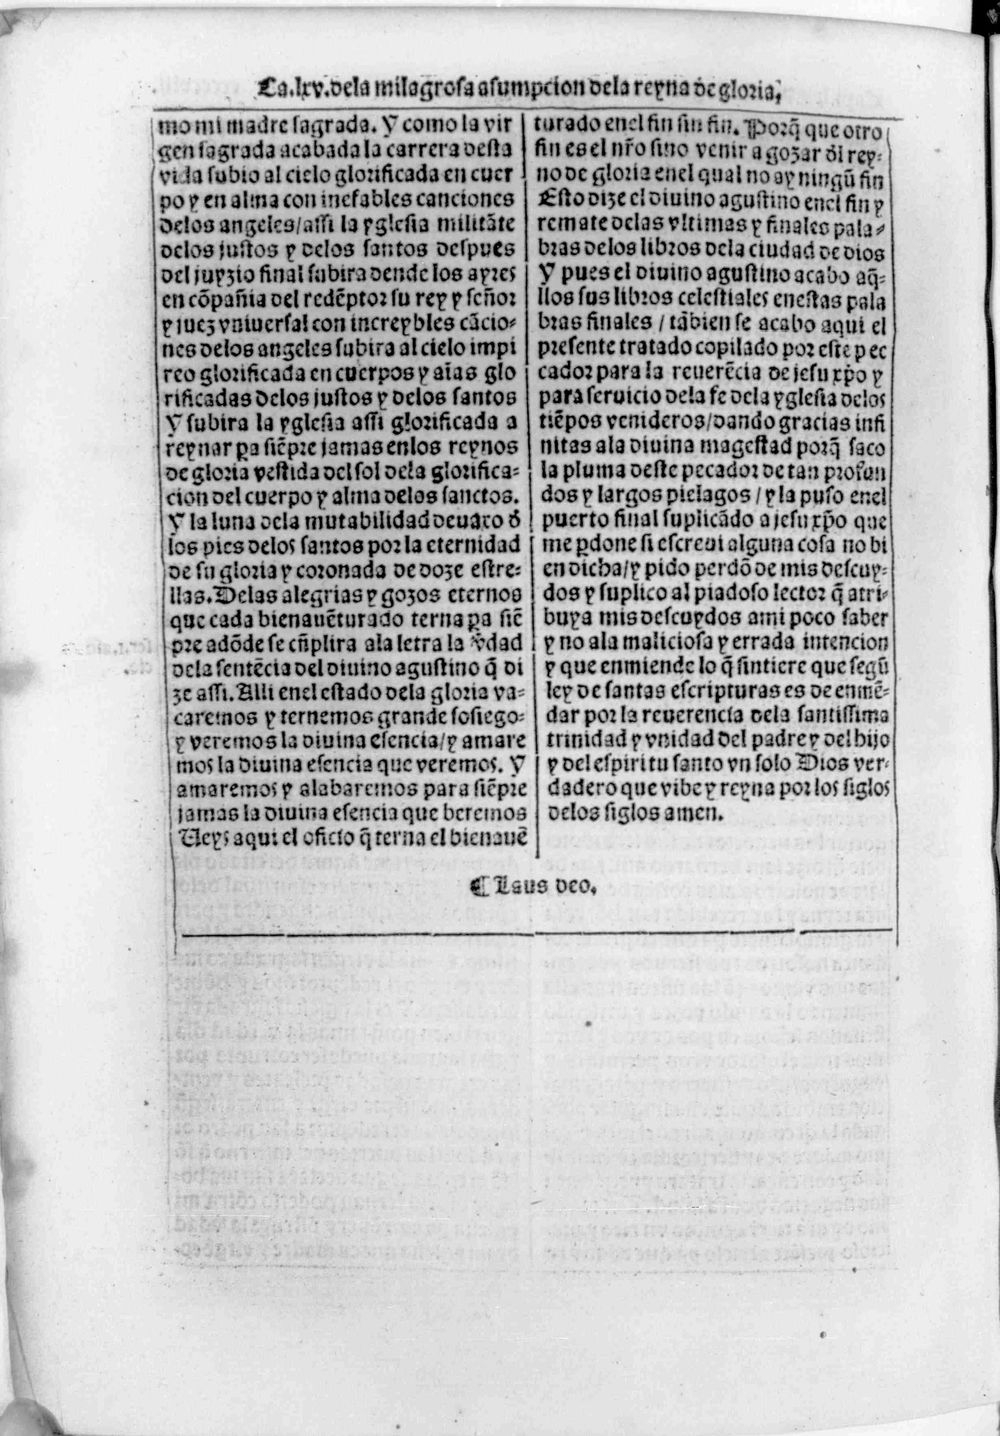 Ca.lxv.dela milagrosa asumpcion dela reyna de gloria,
mo mi madre sagrada. Y como la vir
gen sagrada acabada la carrera desta
vida subio al cielo glorificada en cuer
po y en alma con inefables canciones
delos angeles/assi la yglesia militãte
delos justos y delos santos despues
del juyzio final subira dende los ayres
en cõpañia del redẽptor su rey y señor
y juez vniuersal con increybles cãcio-
nes delos angeles subira al cielo impi
reo glorificada en cuerpos y aĩas glo
rificadas delos justos y delos santos
Y subira la yglesia assi glorificada a
reynar pa siẽpre jamas enlos reynos
de gloria vestida del sol dela glorifica-
cion del cuerpo y alma delos sanctos.
Y la luna dela mutabilidad deuaxo đ
los pies delos santos por la eternidad
de su gloria y coronada de doze estre-
llas. Delas alegrias y gozos eternos
que cada bienauẽturado terna pa siẽ
pre adõde se cũplira ala letra la v̄dad
dela sentẽcia del diuino agustino q̃ di
ze assi. Alli enel estado dela gloria va-
caremos y ternemos grande sosiego-
y veremos la diuina esencia/y amare
mos la diuina esencia que veremos. Y
amaremos y alabaremos para siẽpre
jamas la diuina esencia que beremos
Ueys aqui el oficio q̃ terna el bienauẽ
turado enel fin sin fin. Porq̃ que otro
fin es el nr̃o sino venir a gozar đl rey-
no de gloria enel qual no ay ningũ fin
Esto dize el diuino agustino enel fin y
remate delas vltimas y finales pala-
bras delos libros dela ciudad de dios
Y pues el diuino agustino acabo aq̃-
llos sus libros celestiales enestas pala
bras finales / tãbien se acabo aqui el
presente tratado copilado por este pec
cador para la reuerẽcia de jesu xp̃o y
para seruicio dela fe dela yglesia delos
tiẽpos venideros/dando gracias infi
nitas ala diuina magestad porq̃ saco
la pluma deste pecador de tan profun
dos y largos pielagos / y la puso enel
puerto final suplicãdo a jesu xp̃o que
me pdone si escreui alguna cosa no bi
en dicha/y pido perdõ de mis descuy-
dos y suplico al piadoso lector q̃ atri-
buya mis descuydos ami poco saber
y no ala maliciosa y errada intencion
y que enmiende lo q̃ sintiere que segũ
ley de santas escripturas es de enmẽ-
dar por la reuerencia dela santissima
trinidad y vnidad del padre y del hijo
y del espiritu santo vn solo Dios ver-
dadero que vibe y reyna por los siglos
delos siglos amen.
¶ Laus deo,